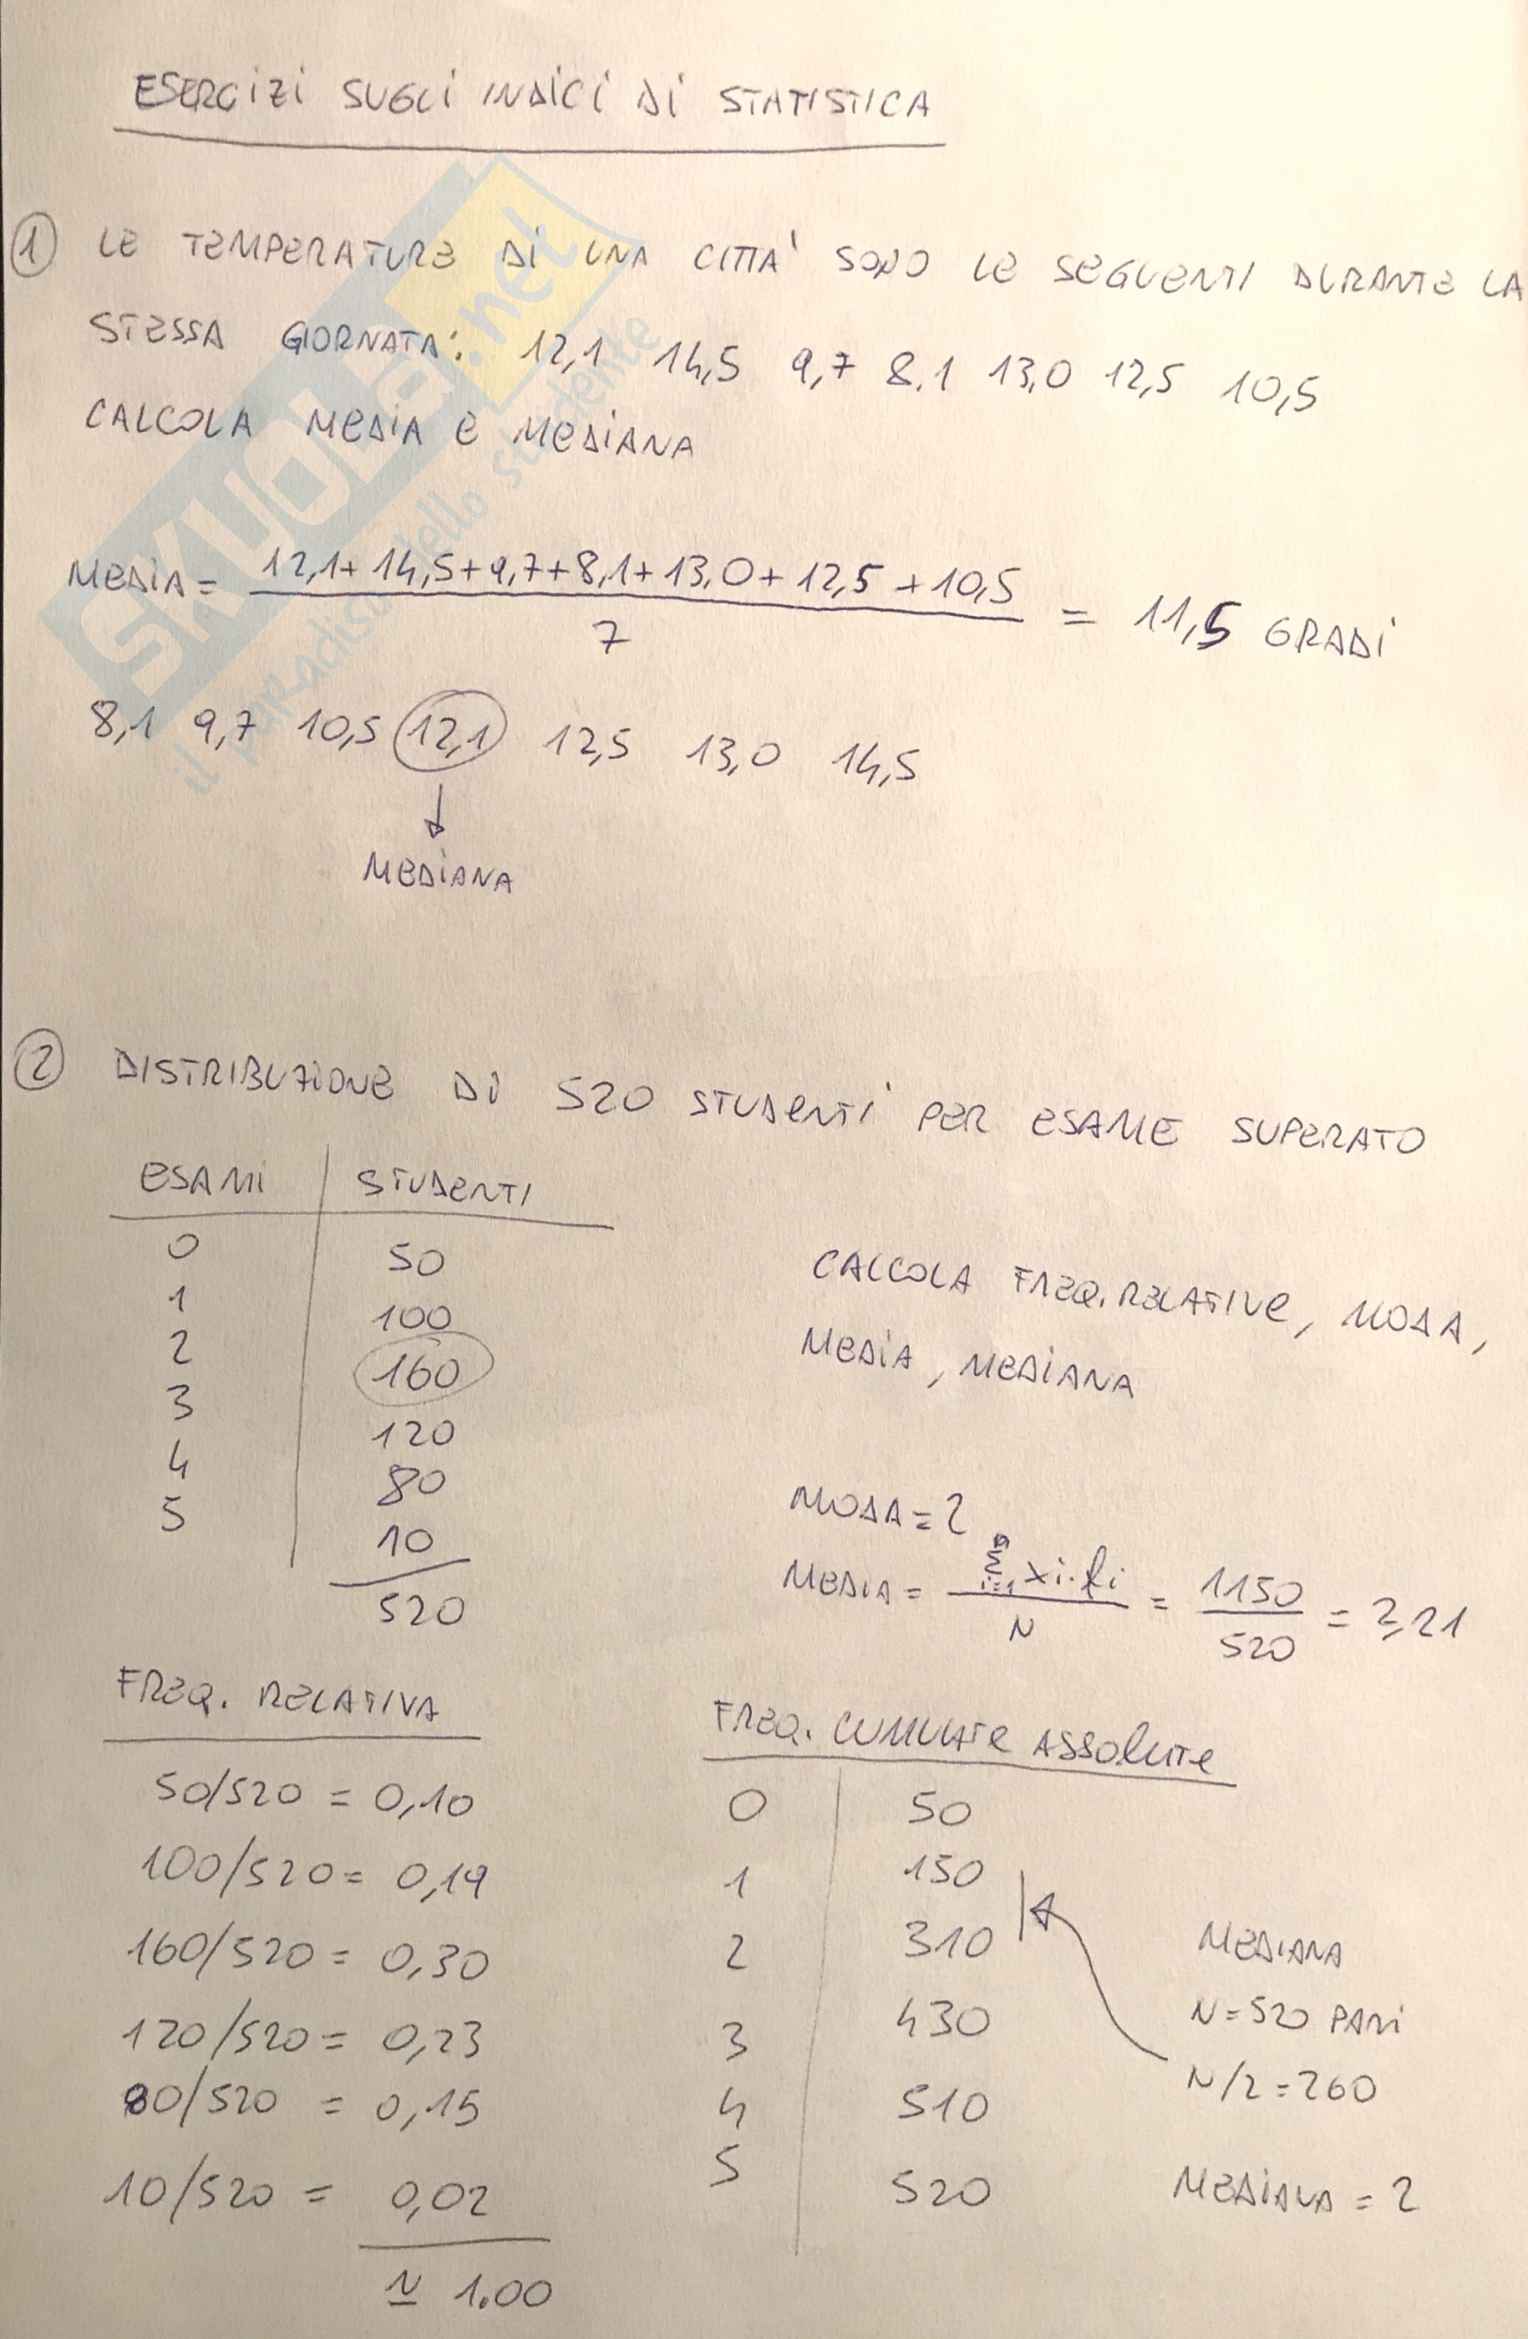 ESERCIZI SUGLI INDICI DI STATISTICA
① LE TEMPERATURE DI UNA CITTA' SONO LE SEGUENTI DURANTE LA
STESSA GIORNATA: 12,1 14,5 9,7 8,1 13,0 12,5 10,5
CALCOLA MEDIA E MEDIANA
MEDIA = 12,1+14,5+9,7+8,1+13,0+12,5+10,5 / 7 = 11,5 GRADI
8,1 9,7 10,5 12,1 12,5 13,0 14,5
↓
MEDIANA
② DISTRIBUZIONE DI 520 STUDENTI PER ESAME SUPERATO
ESAMI | STUDENTI
0 | 50
1 | 100
2 | 160
3 | 120
4 | 80
5 | 10
520
CALCOLA FREQ. RELATIVE, MODA,
MEDIA, MEDIANA
MODA = 2
MEDIA = Σ i=1 xi·fi / N = 1150/520 = 2,21
FREQ. RELATIVA
50/520 = 0,10
100/520 = 0,19
160/520 = 0,30
120/520 = 0,23
80/520 = 0,15
10/520 = 0,02
≃ 1.00
FREQ. CUMULATE ASSOLUTE
0 | 50
1 | 150
2 | 310
3 | 430
4 | 510
5 | 520
MEDIANA
N=520 PARI
N/2=260
MEDIANA = 2
SKUOLA.net
il paradiso dello studente